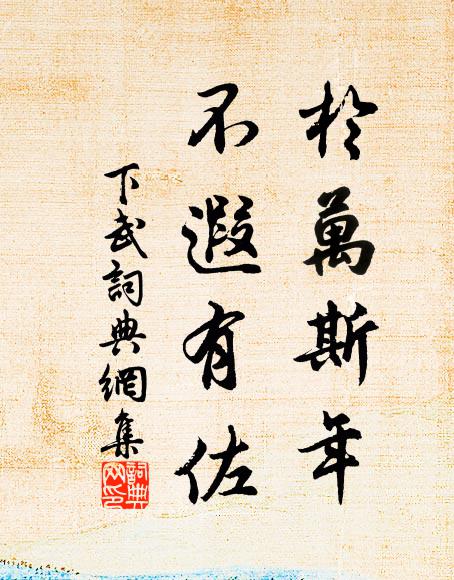 於萬斯年
不遐有佐
下武詞典網集
詞典網印